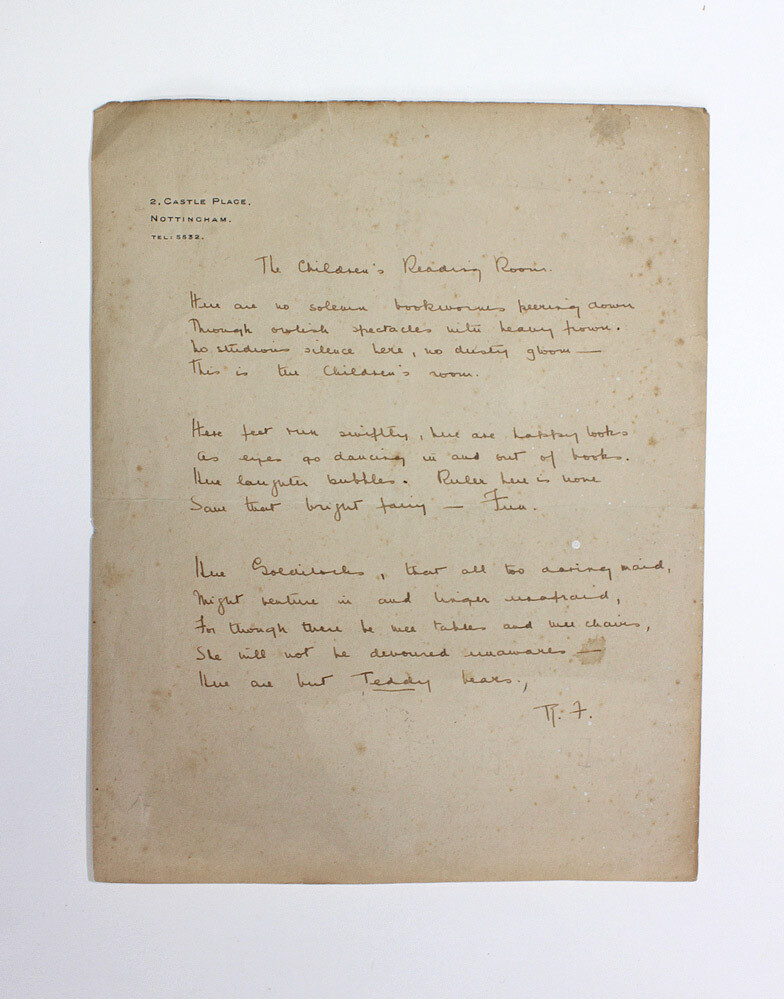 2, CASTLE PLACE,
NOTTINGHAM.
TEL: 5532.
The Children's Reading Room.
Here are no solemn bookworms peering down
Through owlish spectacles with heavy frown.
No studious silence here, no dusty gloom —
This is the Children's room.
Here feet run swiftly, here are happy looks
As eyes go dancing in and out of books.
Here laughter bubbles. Ruler here is none
Save that bright fairy — Fun.
Here Goldilocks, that all too daring maid,
Might venture in and linger unafraid,
For though there be wee tables and wee chairs,
She will not be devoured unawares —
Here are but Teddy bears.,
R. F.